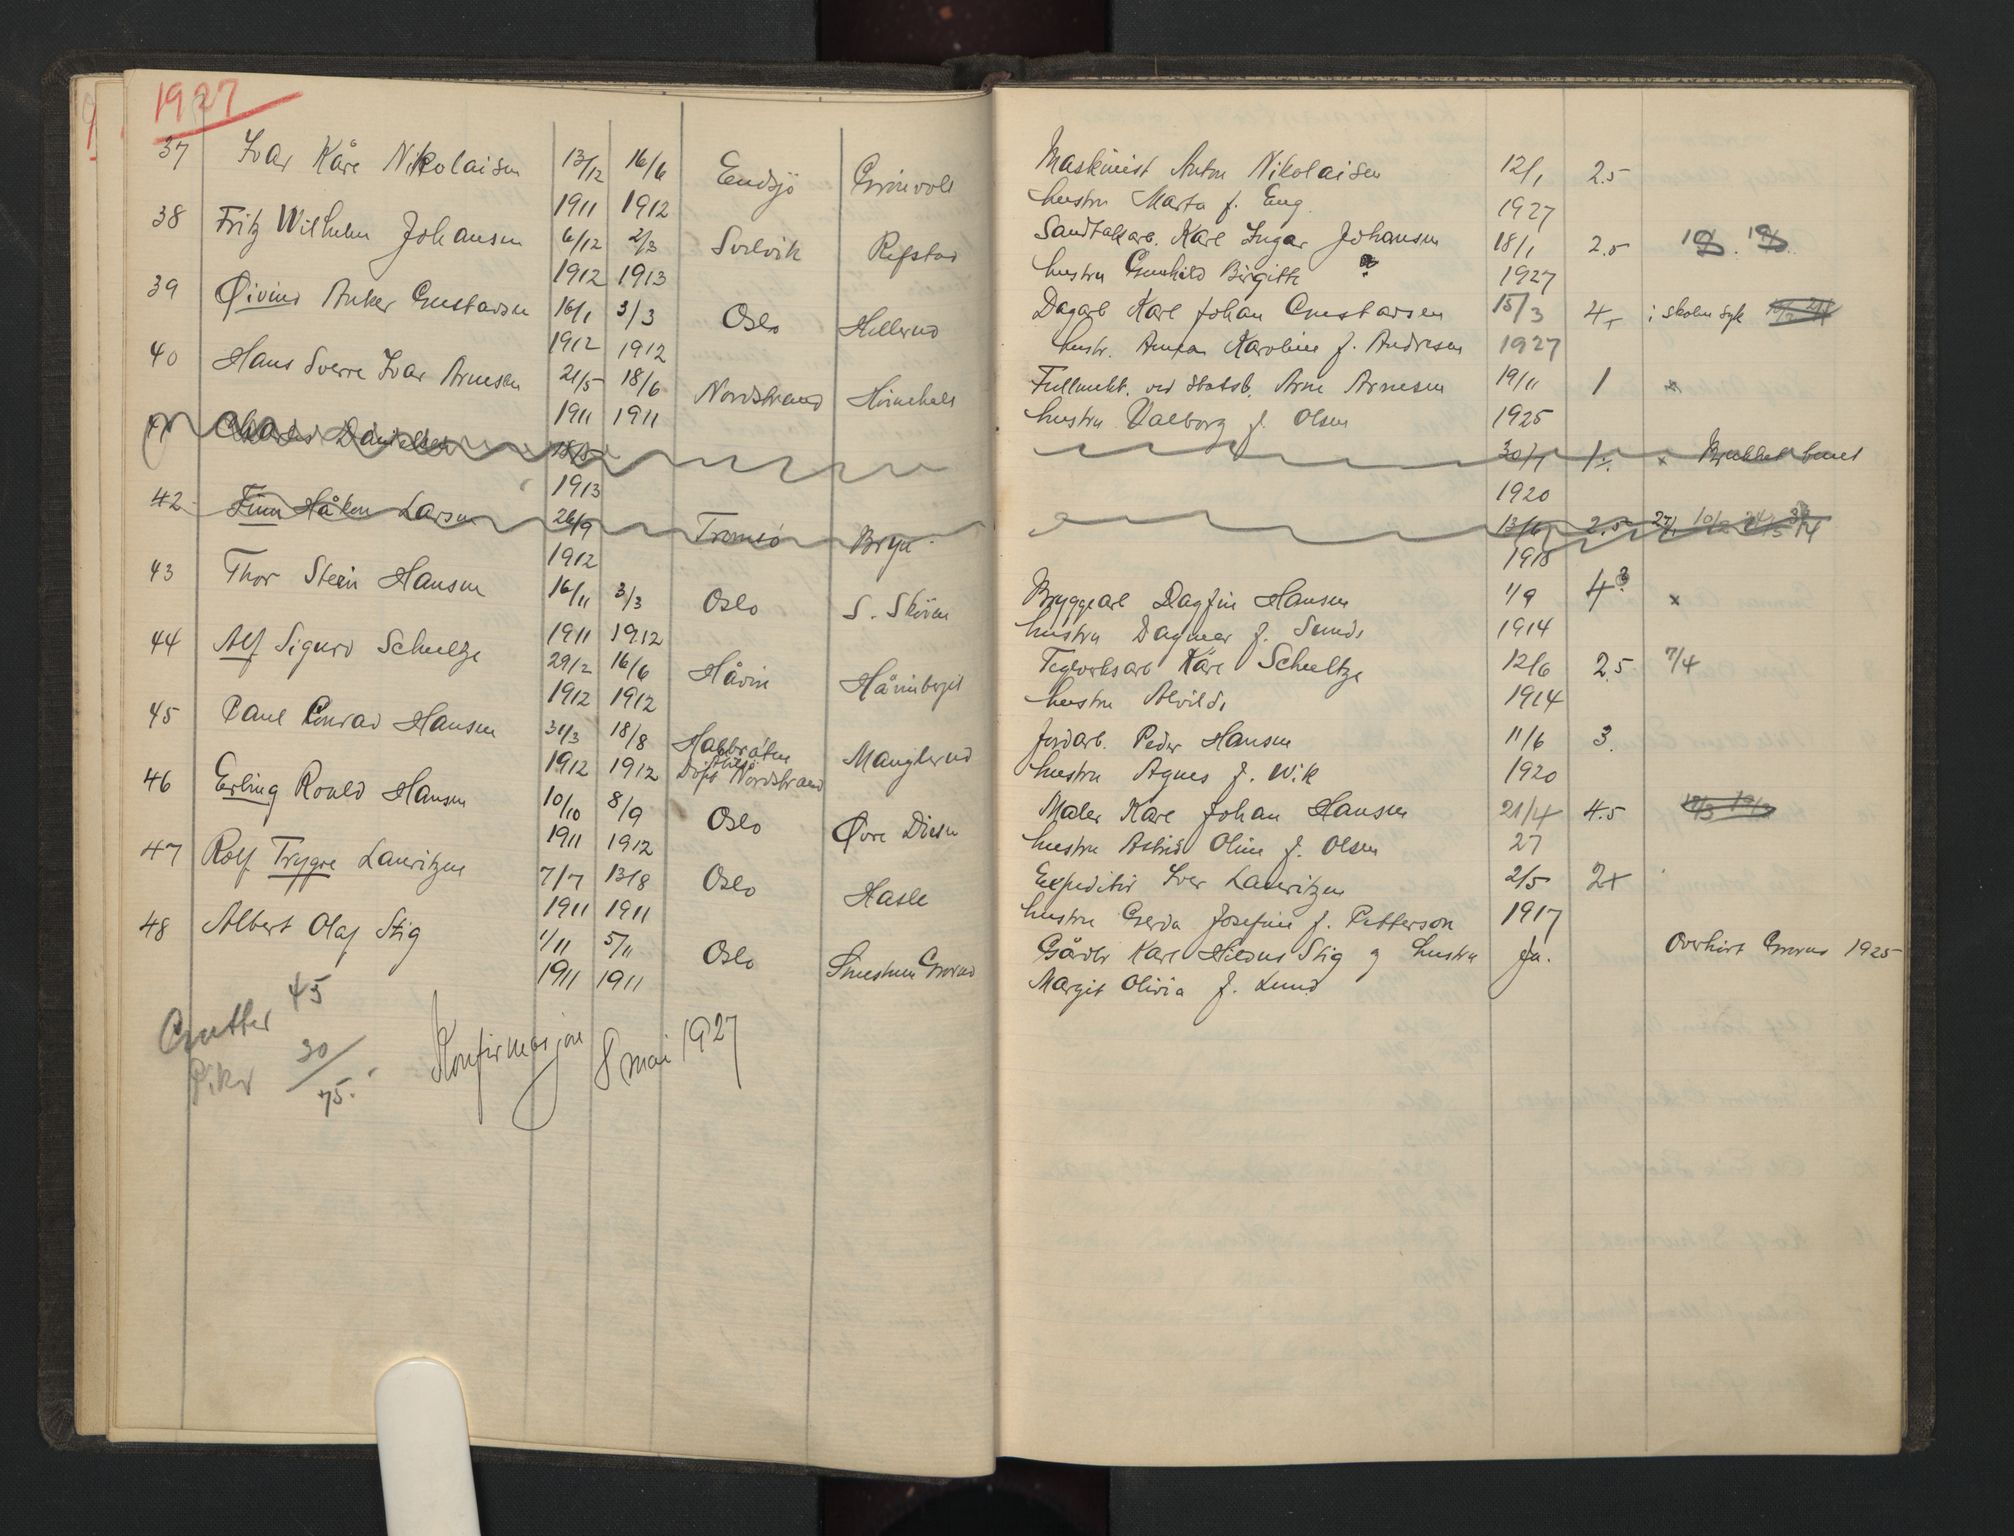 1927
37 Ivar Kåre Nikolaisen 13/12 16/6 Eudsjö Grönvoll Maskinist Anton Nikolaisen 12/1 2.5
1911 1912 hustru Marta f. Eng. 1927
38 Fritz Wilhelm Johansen 6/12 2/3 Svelvik Refstad Sandtakarb. Karl Ingar Johansen 18/1 2.5
1912 1913 hustru Gunhild Birgitte ? 1927
39 Øivind Anker Gustavsen 16/1 3/3 Oslo Hellerud Dagarb Karl Johan Gustavsen 15/3 4+ i skolen syk
1912 1912 hustr. Anna Karoline f. Andresen 1927
40 Hans Sverre Ivar Arnesen 21/5 18/6 Nordstrand Fullmekt. ved statsb. Arne Arnesen 19/11 1 x
1911 1911 hustru Valborg f. Olsen 1925
41 Charles Danielsen 18/5 30/7 1 x Brukket benet
1913 1920
42 Finn Håkon Larsen 26/9 Tromsö Bryn 13/6 2.5 27/1 10/2 24/3
1912 1918
43 Thor Stein Hansen 16/11 3/3 Oslo S. Sköien Bryggearb Dagfin Hansen 1/9 4 x
1911 1912 hustru Dagmar f. Sunds 1914
44 Alf Sigurd Schultze 29/2 16/6 Håvin Håvinberget Teglverksarb Kåre Schultze 12/6 2.5 7/4
1912 1912 hustru Alvilde 1914
45 Paul Conrad Hansen 31/3 18/8 Hallbråten Manglerud Jordarb. Peder Hansen 11/6 3.
1912 1912 Döpt Nordstrand hustru Agnes f. Wik 1920
46 Erling Roald Hansen 10/10 8/9 Oslo Øvre Maler Kåre Johan Hansen 21/4 4.5
1911 1912 hustru Astrid Oline f. Olsen 27
47 Rolf Trygve Lauritzen 7/7 13/8 Oslo Hasle Expeditör Iver Lauritzen 2/5 2+
1911 1911 hustru Gerda Josefine f. Petterson 1917
48 Albert Olaf Stig 1/11 5/11 Oslo Grorud Gårdbr Karl Stig og hustru Ja. Overhört Grorud 1925
1911 1911 Margit Olivia f. Lund
Gutter 45
Piker 30
75.
Konfirmasjon 8 mai 1927